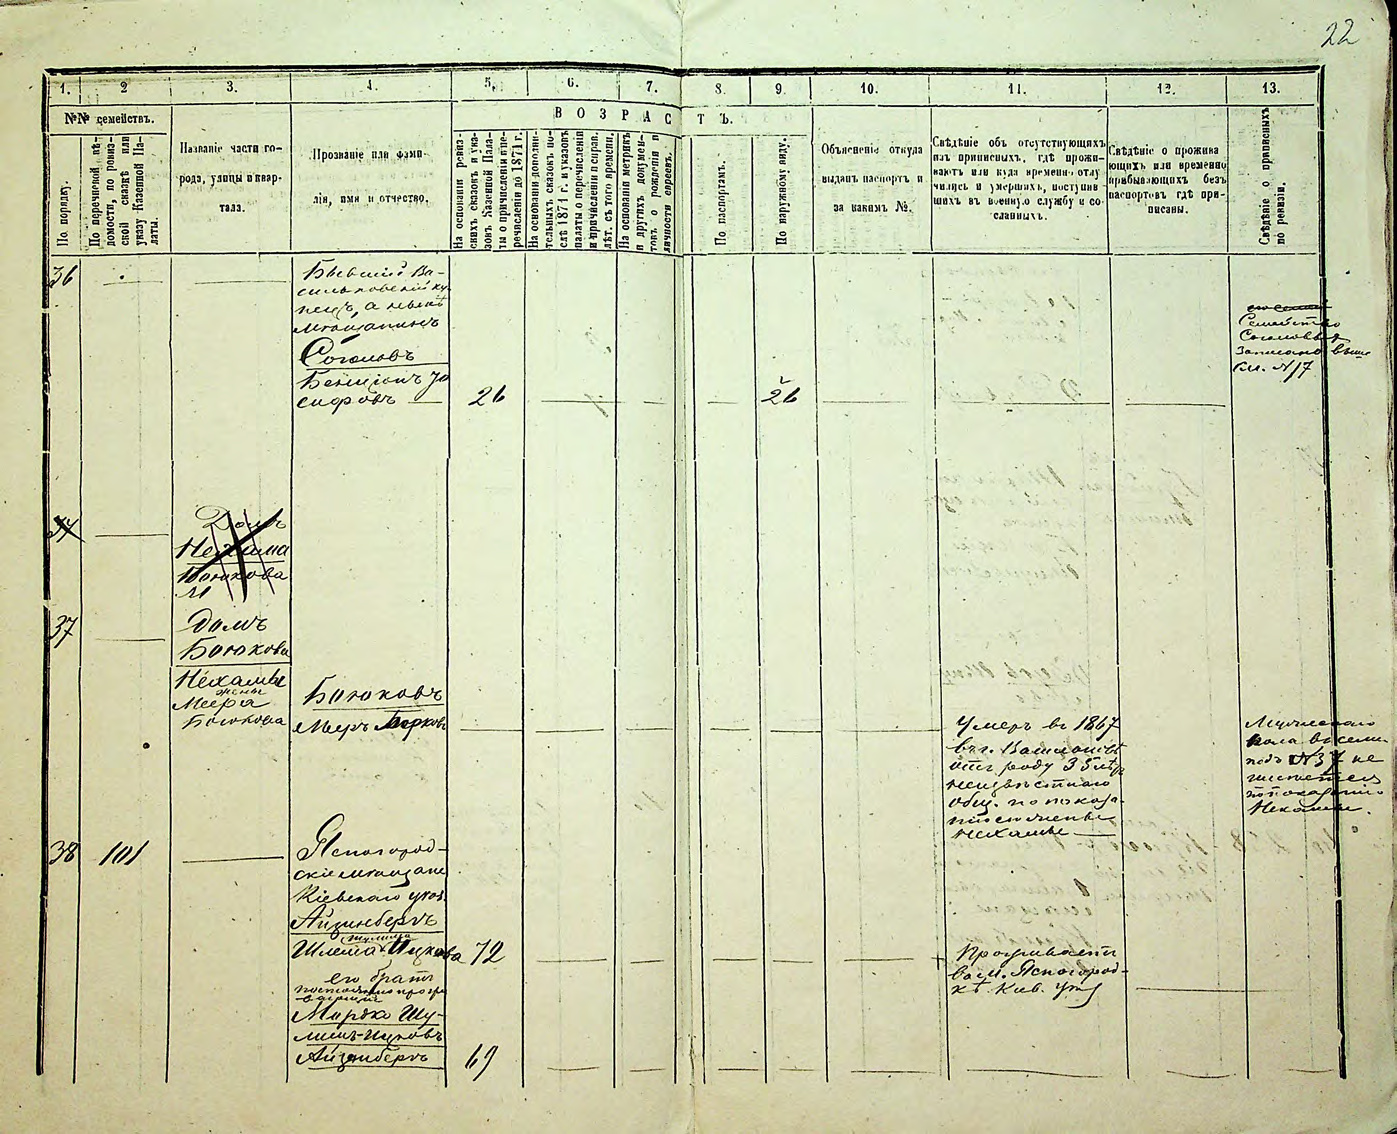 22
1. 2 3. 4. 5. 6. 7. 8. 9. 10. 11. 12. 13.
№№ семействъ.
По порядку.
По перечневой вѣ-
домости, по ревиз-
ской сказкѣ или
указу Казенной Па-
латы.
Названіе части го-
рода, улицы и квар-
тала.
Прозваніе или фами-
лія, имя и отчество.
ВОЗРАСТЪ.
На основаніи ревиз-
скихъ сказокъ и ука-
зовъ Казенной Пала-
ты о причисленіи и пе-
речисленіи до 1871 г.
На основаніи дополни-
тельныхъ сказокъ по-
слѣ 1871 г. и указовъ
палаты о перечисленіи
и причисленіи и справ.
лѣт. съ того времени.
На основаніи метрикъ
и другихъ докумен-
товъ о рожденіи и
личности евреевъ.
По паспортамъ.
По наружному виду.
Объясненіе откуда
выданъ паспортъ и
за какимъ №.
Свѣдѣніе объ отсутствующихъ
изъ приписныхъ, гдѣ прожи-
ваютъ или куда временно отлу
чились и умершихъ, поступив
шихъ въ военную службу и со-
сланныхъ.
Свѣдѣніе о прожива
ющихъ или временно
прибывающихъ безъ
паспортовъ гдѣ при-
писаны.
Свѣдѣніе о приписныхъ
по ревизіи.
36
Бывшій Ва-
сильковскій ку-
пецъ, а нынѣ
мѣщанинъ
Соколовъ
Бенціонъ Іо
сифовъ
26 26
Семейство
Соколовыхъ
Записано выше
см. №17
37
Домъ
Нехама
Боюкова
37
Домъ
Боюкова
Нехамы
жены
Меера
Боюкова
Боюковъ
Меръ Берковъ
Умеръ въ 1867
въ г. Васильковѣ
отъ роду 35 лѣтъ
неизвѣстнаго
общ. по показа-
нію
Нехамы
подъ №37 не
числится
по показанію
Нехамы.
38 101
Ясногород-
скіе мѣщане
Кіевскаго уѣз.
Айзинбергъ
Шлема Ицкова 72
Проживаетъ
въ м. Ясногород-
кѣ Кіев. уѣз
его братъ
Мордко Шу-
лимъ-Ицковъ
Айзинбергъ 69